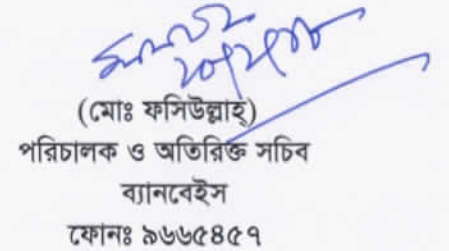 (মোঃ ফসিউল্লাহ্)
পরিচালক ও অতিরিক্ত সচিব
ব্যানবেইস
ফোনঃ ৯৬৬৫৪৫৭